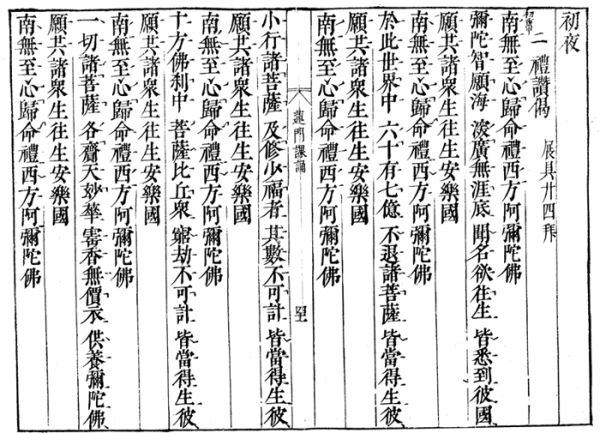 初夜
二禮讚偈 展具廿四拜
南無至心歸命禮西方阿彌陀佛
彌陀智願海 深廣無涯底 聞名欲往生 皆悉到彼國
願共諸衆生往生安樂國
南無至心歸命禮西方阿彌陀佛
於此世界中 六十有七億 不退諸菩薩 皆當得生彼
願共諸衆生往生安樂國
南無至心歸命禮西方阿彌陀佛
龍門課誦
小行諸菩薩 及修少福者 其數不可計 皆當得生彼
願共諸衆生往生安樂國
南無至心歸命禮西方阿彌陀佛
十方佛刹中 菩薩比丘衆 窮劫不可計 皆當得生彼
願共諸衆生往生安樂國
南無至心歸命禮西方阿彌陀佛
一切諸菩薩 各齎天妙華 寶香無價衣 供養彌陀佛
願共諸衆生往生安樂國
南無至心歸命禮西方阿彌陀佛